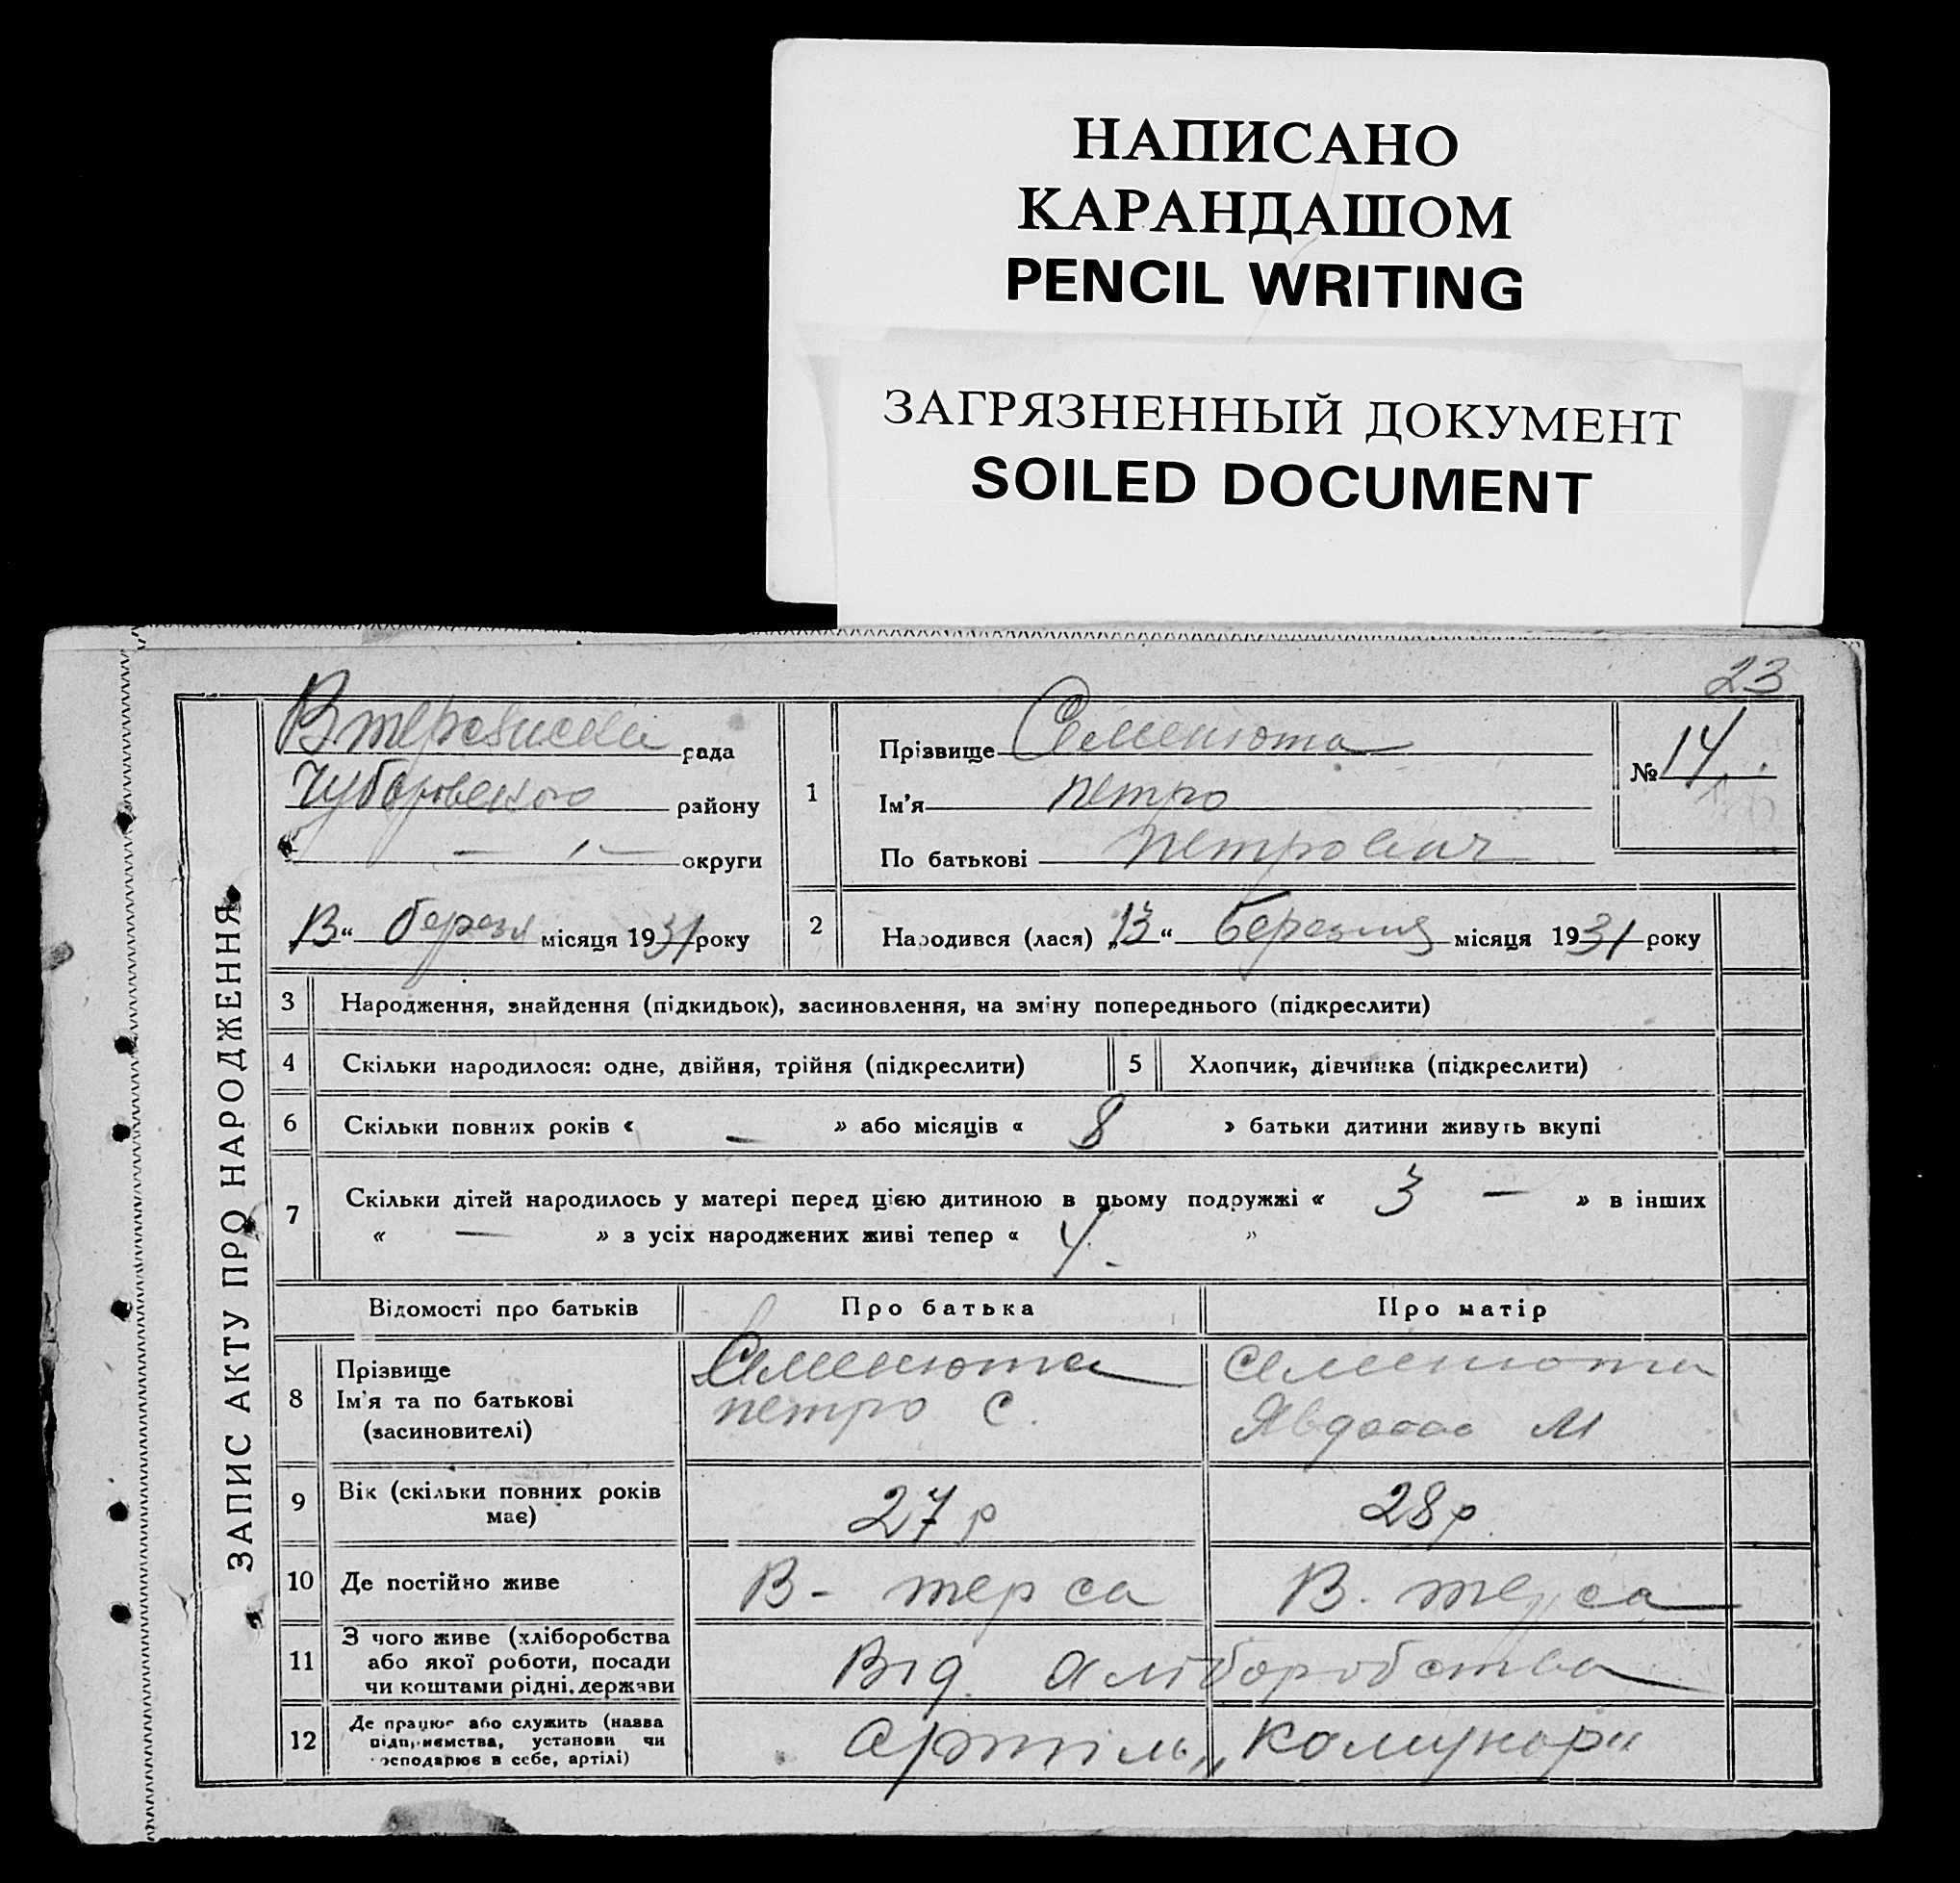 НАПИСАНО
КАРАНДАШОМ
PENCIL WRITING
ЗАГРЯЗНЕННЫЙ ДОКУМЕНТ
SOILED DOCUMENT
23
ЗАПИС АКТУ ПРО НАРОДЖЕННЯ
рада
району
округи
13 “ березня місяця 1931 року
1
Прізвище Семенюта
Ім'я петро
По батькові петрович
№ 14
2 Народився (лася) „13“ березня місяця 1931 року
3 Народження, знайдення (підкидьок), засиновлення, на зміну попереднього (підкреслити)
4 Скільки народилося: одне, двійня, трійня (підкреслити) 5 Хлопчик, дівчинка (підкреслити)
6 Скільки повних років « — » або місяців « 8 » батьки дитини живуть вкупі
7 Скільки дітей народилось у матері перед цією дитиною в цьому подружжі « 3 — » в інших
« — » з усіх народжених живі тепер « 4. »
Відомості про батьків Про батька Про матір
8 Прізвище
Ім'я та по батькові
(засиновителі)
Семенюта
петро С.
Семенюта
М
9 Вік (скільки повних років
має)
27 р 28 р
10 Де постійно живе В - терса В. терса
11 З чого живе (хліборобства
або якої роботи, посади
чи коштами рідні, держави
Від хліборобства
12 Де працює або служить (назва
підприємства, установи чи
господарює в себе, артілі)
артіль „комунар"